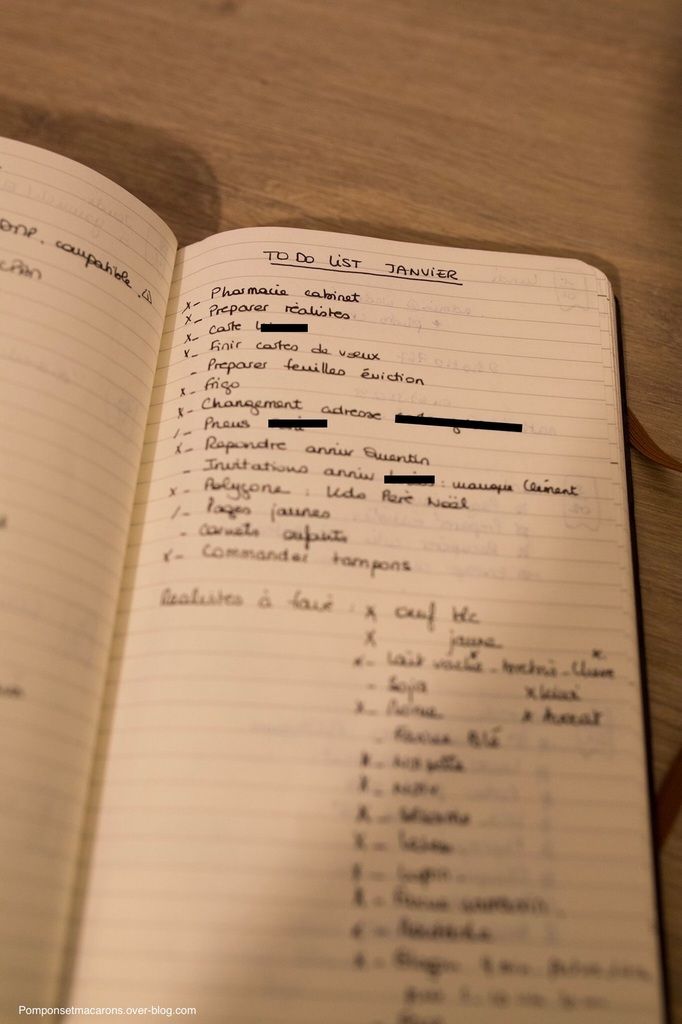 compatible.
TO DO LIST JANVIER
x- Pharmacie cabinet
x- Préparer réalistes
x- Carte
x- Finir cartes de vœux
- Préparer feuilles éviction
x- Frigo
x- Changement adresse
/- Pneus
x- Repondre anniv Quentin
- Invitations anniv : manque Clément
x- Polygone : Udo Père Noël
/- Pages jaunes
- Carnets enfants
x- Commander tampons
Réalistes à faire : x œuf blc
x jaune
x- Lait vache - brebis - chèvre
- Soja x kiwi
x Avocat
- Farine Blé
x- Noisette
x- Noix
x- Sésame
x- Lupin
x- Farine sarrasin
x- Moutarde
Pomponsetmacarons.over-blog.com